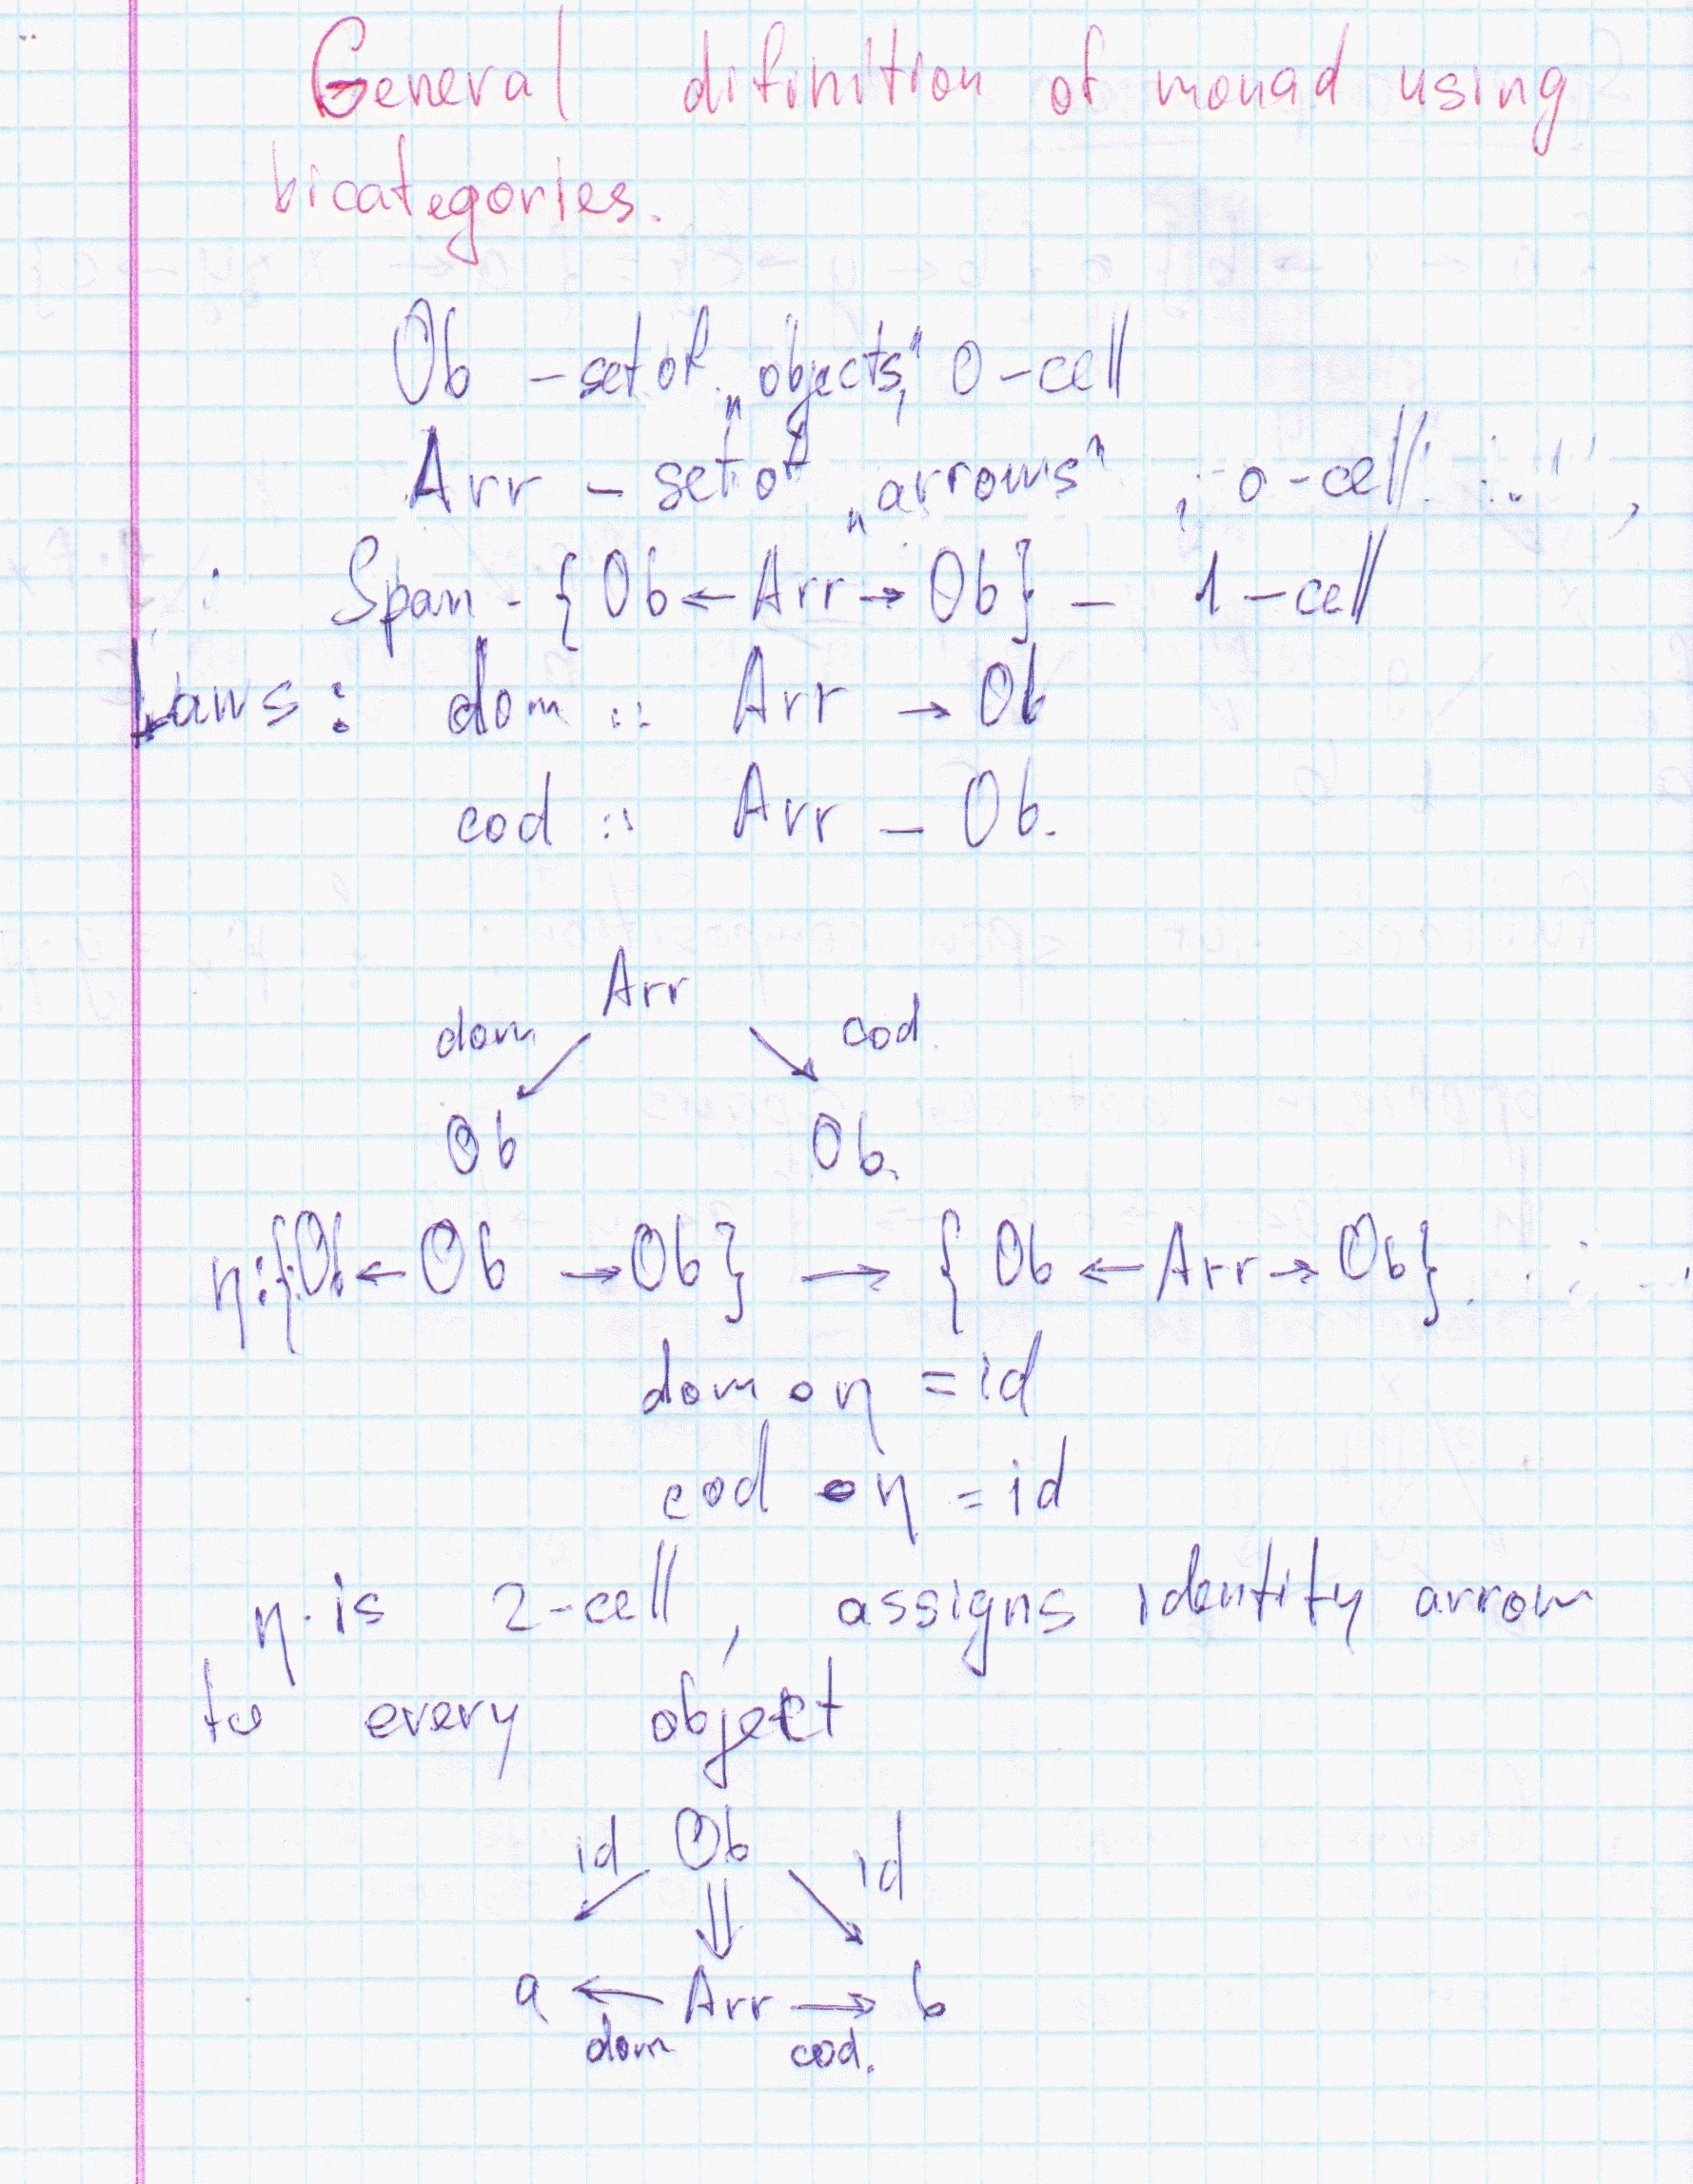 General difinition of monad using
bicategories.
Ob – set of „objects“, 0-cell
Arr – set of „arrows“, 0-cell
Span - {Ob ← Arr → Ob} – 1-cell
Laws: dom :: Arr → Ob
cod :: Arr – Ob.
Arr
dom cod.
Ob Ob.
η:{Ob ← Ob → Ob} → {Ob ← Arr → Ob}.
dom ∘ η = id
cod ∘ η = id
η is 2-cell, assigns identity arrow
to every object
id Ob id
⇓
a ← Arr → b
dom cod.